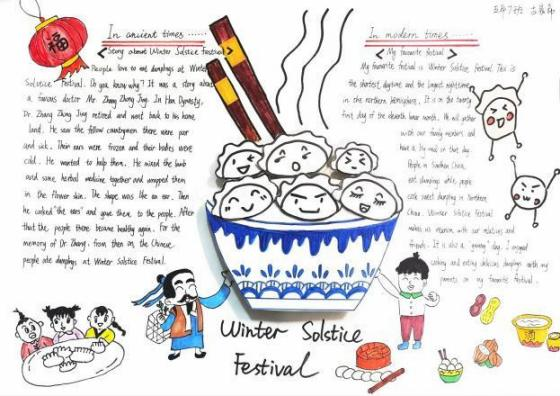 五年7班
福
In ancient times ......
Story about Winter Solstice Festival
People love to eat dumplings at Winter
Solstice Festival. Do you know why? It was a story about
a famous doctor Mr. Zhang Zhong Jing. In Han Dynasty,
Dr. Zhang Zhong Jing retired and went back to his home
land. He saw the fellow countrymen there were poor
and sick. Their ears were frozen and their bodies were
cold. He wanted to help them. He mixed the lamb
and some herbal medicine together and wrapped them
in the flower skin. The shape was like an ear. Then
he cooked "the ears" and gave them to the people. After
that the people there became healthy again. For the
memory of Dr Zhang, from then on the Chinese
people ate dumplings at Winter Solstice Festival.
In modern times ......
My favourite festival
My favourite festival is Winter Solstice Festival. This is
the shortest daytime and the longest nighttime
in the northern hemisphere. It is on the twenty
first day of the eleventh lunar month. We will gather
with our family members and
have a big meal on that day.
People in Southern China
eat dumplings while people
cook sweet dumpling in Northern
China. Winter Solstice Festival
makes us reunion with our relatives and
friends. It is also a "yummy" day. I enjoyed
cooking and eating delicious dumplings with my
parents on my favourite festival.
Winter Solstice
Festival